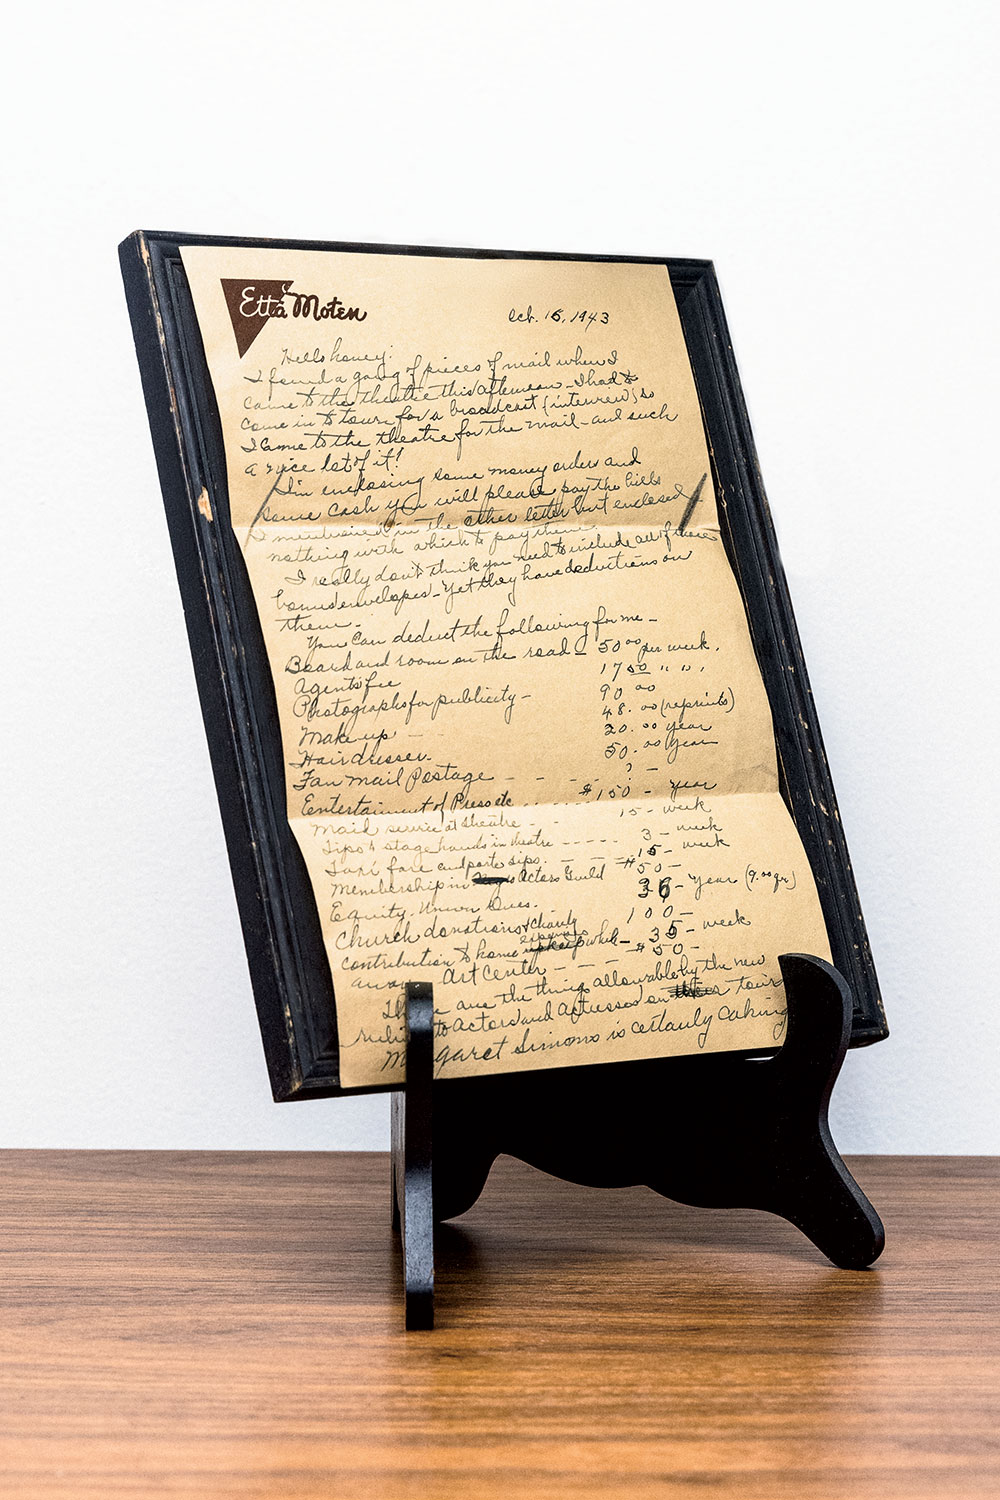 Etta Moten
Oct. 16, 1943
Hello honey:
I found a gang of pieces of mail when I
came to the theatre this afternoon - I had to
come in to town for a broadcast (interview) so
I came to the theatre for the mail - and such
a nice lot of it!
I'm enclosing some money orders and
some cash you will please pay the bills
I mentioned in the other letter but enclosed
nothing with which to pay them.
I really don't think you need to include all of these
bonus envelopes - Yet they have deductions on
them -
You can deduct the following for me -
Board and room on the road - 50.00 per week.
Agents fee 17.50 " " "
Photographs for publicity - 90.00
48.00 (reprints)
Make-up - 20.00 year
Hairdresser. 50.00 year
Fan mail Postage - - - ? -
Entertainment of Press etc ..... $150 - year
Maid service at theatre - - 15 - week
Tips to stage hands in theatre ----- 3 - week
Taxi fare and porter tips. - - - 15 - week
Membership in Actors Guild - $50 -
Equity. Union Dues. 36 - year (9.00 qr.)
Church donations & charity 100 -
contribution to home expenses while - 35 - week
away Art Center - - - - $50 -
These are the things allowable by the new
to Actors and Actresses on tour
Margaret Simons is certainly taking